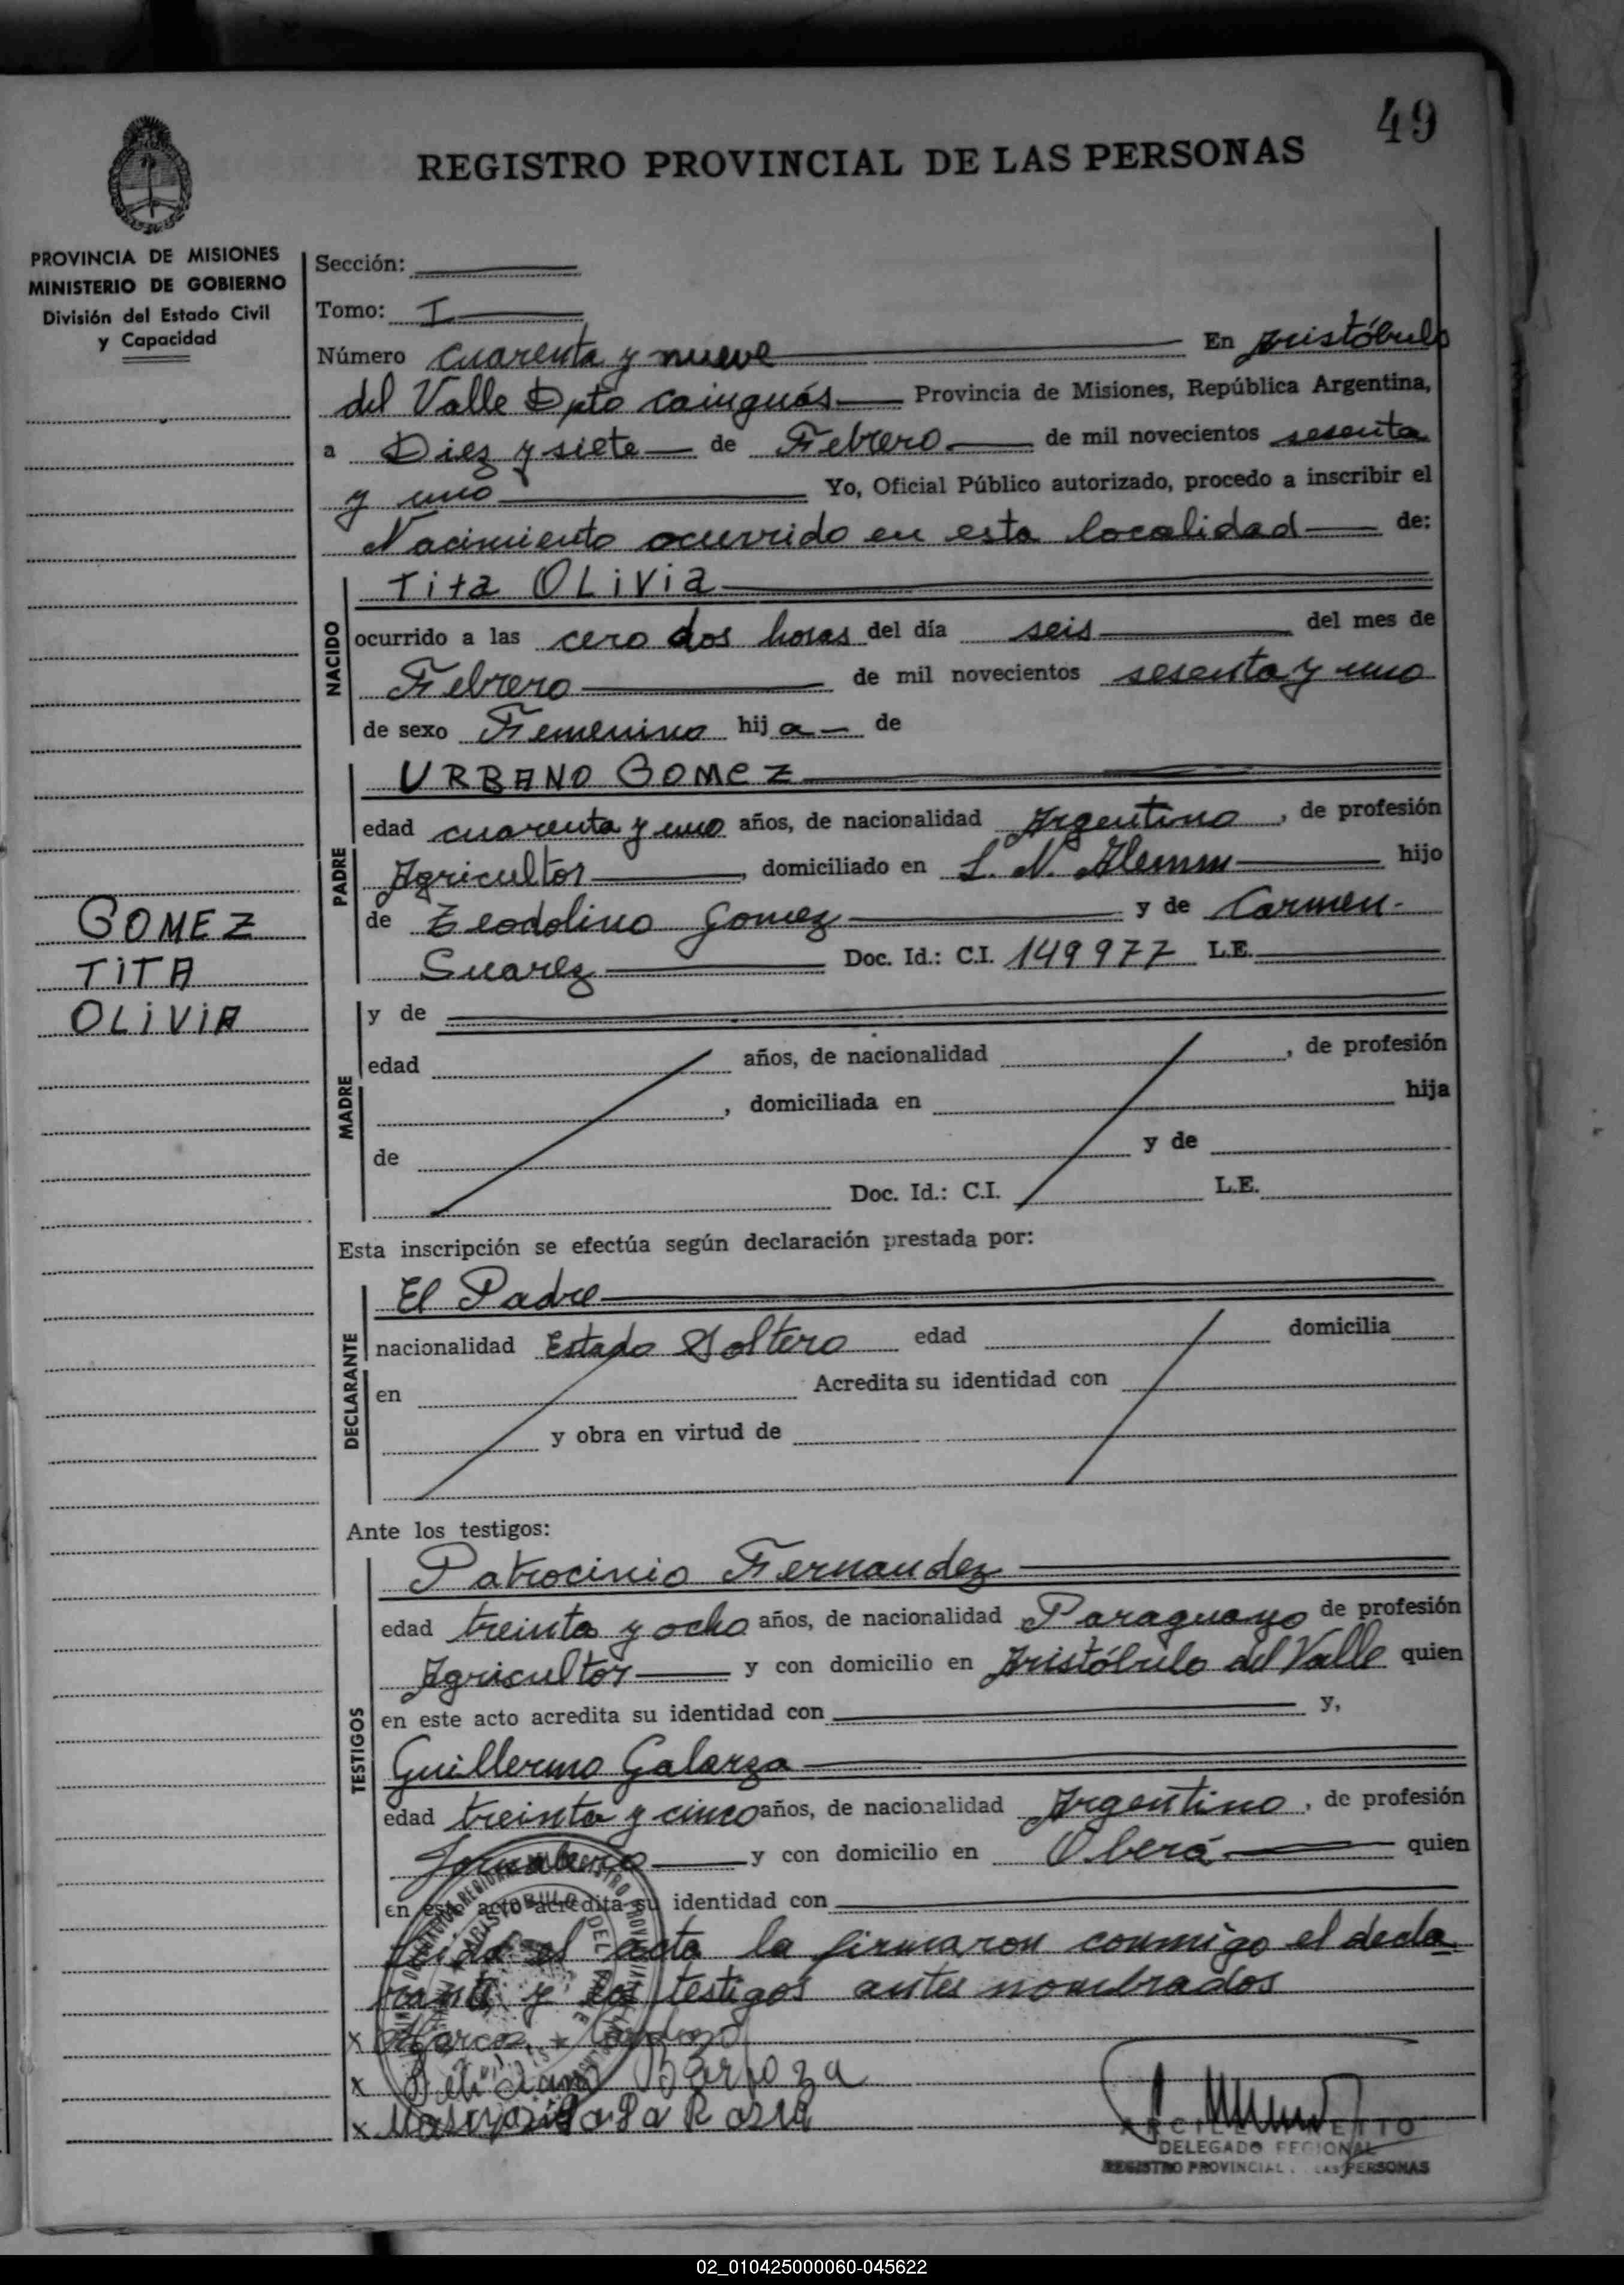 49
REGISTRO PROVINCIAL DE LAS PERSONAS
PROVINCIA DE MISIONES
MINISTERIO DE GOBIERNO
División del Estado Civil
y Capacidad
GOMEZ
TITA
OLIVIA
Sección:
Tomo: I
Número cuarenta y nueve En Aristóbulo
del Valle Dpto cainguás Provincia de Misiones, República Argentina,
a Diez y siete de Febrero de mil novecientos sesenta
y uno Yo, Oficial Público autorizado, procedo a inscribir el
Nacimiento ocurrido en esta localidad de:
NACIDO
Tita OLiVia
ocurrido a las cero dos horas del día seis del mes de
Febrero de mil novecientos sesenta y uno
de sexo Femenino hij a de
PADRE
URBANO GOMEZ
edad cuarenta y uno años, de nacionalidad Argentino, de profesión
Agricultor, domiciliado en L. N. Alemm hijo
de Teodolino Gomez y de Carmen
Suarez Doc. Id.: C.I. 149977 L.E.
MADRE
y de
edad años, de nacionalidad , de profesión
, domiciliada en hija
de y de
Doc. Id.: C.I. L.E.
Esta inscripción se efectúa según declaración prestada por:
DECLARANTE
El Padre
nacionalidad Estado Soltero edad domicilia
en Acredita su identidad con
y obra en virtud de
Ante los testigos:
TESTIGOS
Patrocinio Fernandez
edad treinta y ocho años, de nacionalidad Paraguayo de profesión
Agricultor y con domicilio en Aristóbulo del Valle quien
en este acto acredita su identidad con y,
Guillermo Galarza
edad treinta y cinco años, de nacionalidad Argentino, de profesión
Jornalero y con domicilio en Oberá quien
en este acto acredita su identidad con
Leida el acta la firmaron conmigo el decla
rante y los testigos antes nombrados
x
x Barboza
x
DELEGADO REGIONAL
REGISTRO PROVINCIAL LAS PERSONAS
02_010425000060-045622